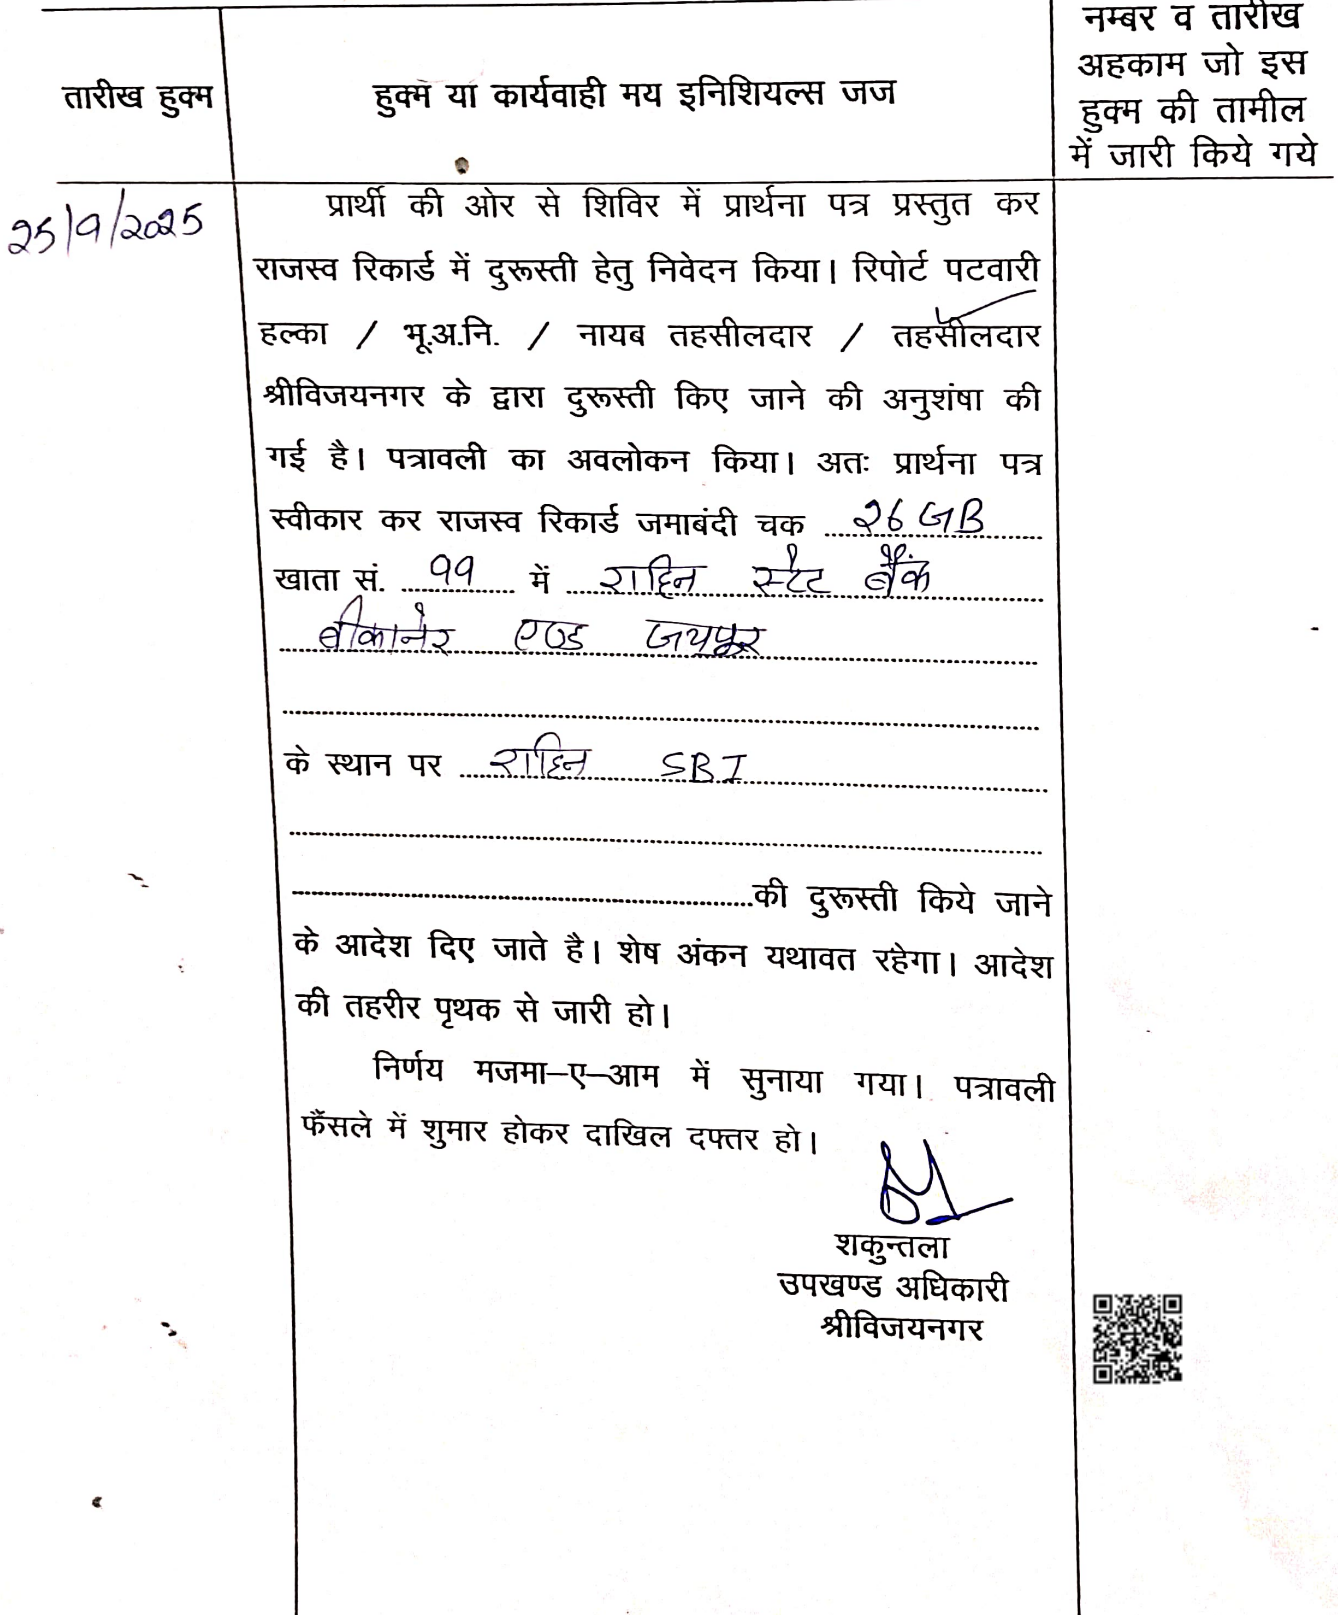 नम्बर व तारीख
अहकाम जो इस
हुक्म की तामील
में जारी किये गये
तारीख हुक्म
हुक्म या कार्यवाही मय इनिशियल्स जज
25/9/2025
प्रार्थी की ओर से शिविर में प्रार्थना पत्र प्रस्तुत कर
राजस्व रिकार्ड में दुरूस्ती हेतु निवेदन किया। रिपोर्ट पटवारी
हल्का / भू.अ.नि. / नायब तहसीलदार / तहसीलदार
श्रीविजयनगर के द्वारा दुरूस्ती किए जाने की अनुशंषा की
गई है। पत्रावली का अवलोकन किया। अतः प्रार्थना पत्र
स्वीकार कर राजस्व रिकार्ड जमाबंदी चक 26 GB
खाता सं. 99 में राहिन स्टैट बैंक
बीकानेर एण्ड जयपुर
के स्थान पर राहिन SBI
की दुरूस्ती किये जाने
के आदेश दिए जाते है। शेष अंकन यथावत रहेगा। आदेश
की तहरीर पृथक से जारी हो।
निर्णय मजमा–ए–आम में सुनाया गया। पत्रावली
फैंसले में शुमार होकर दाखिल दफ्तर हो।
शकुन्तला
उपखण्ड अधिकारी
श्रीविजयनगर